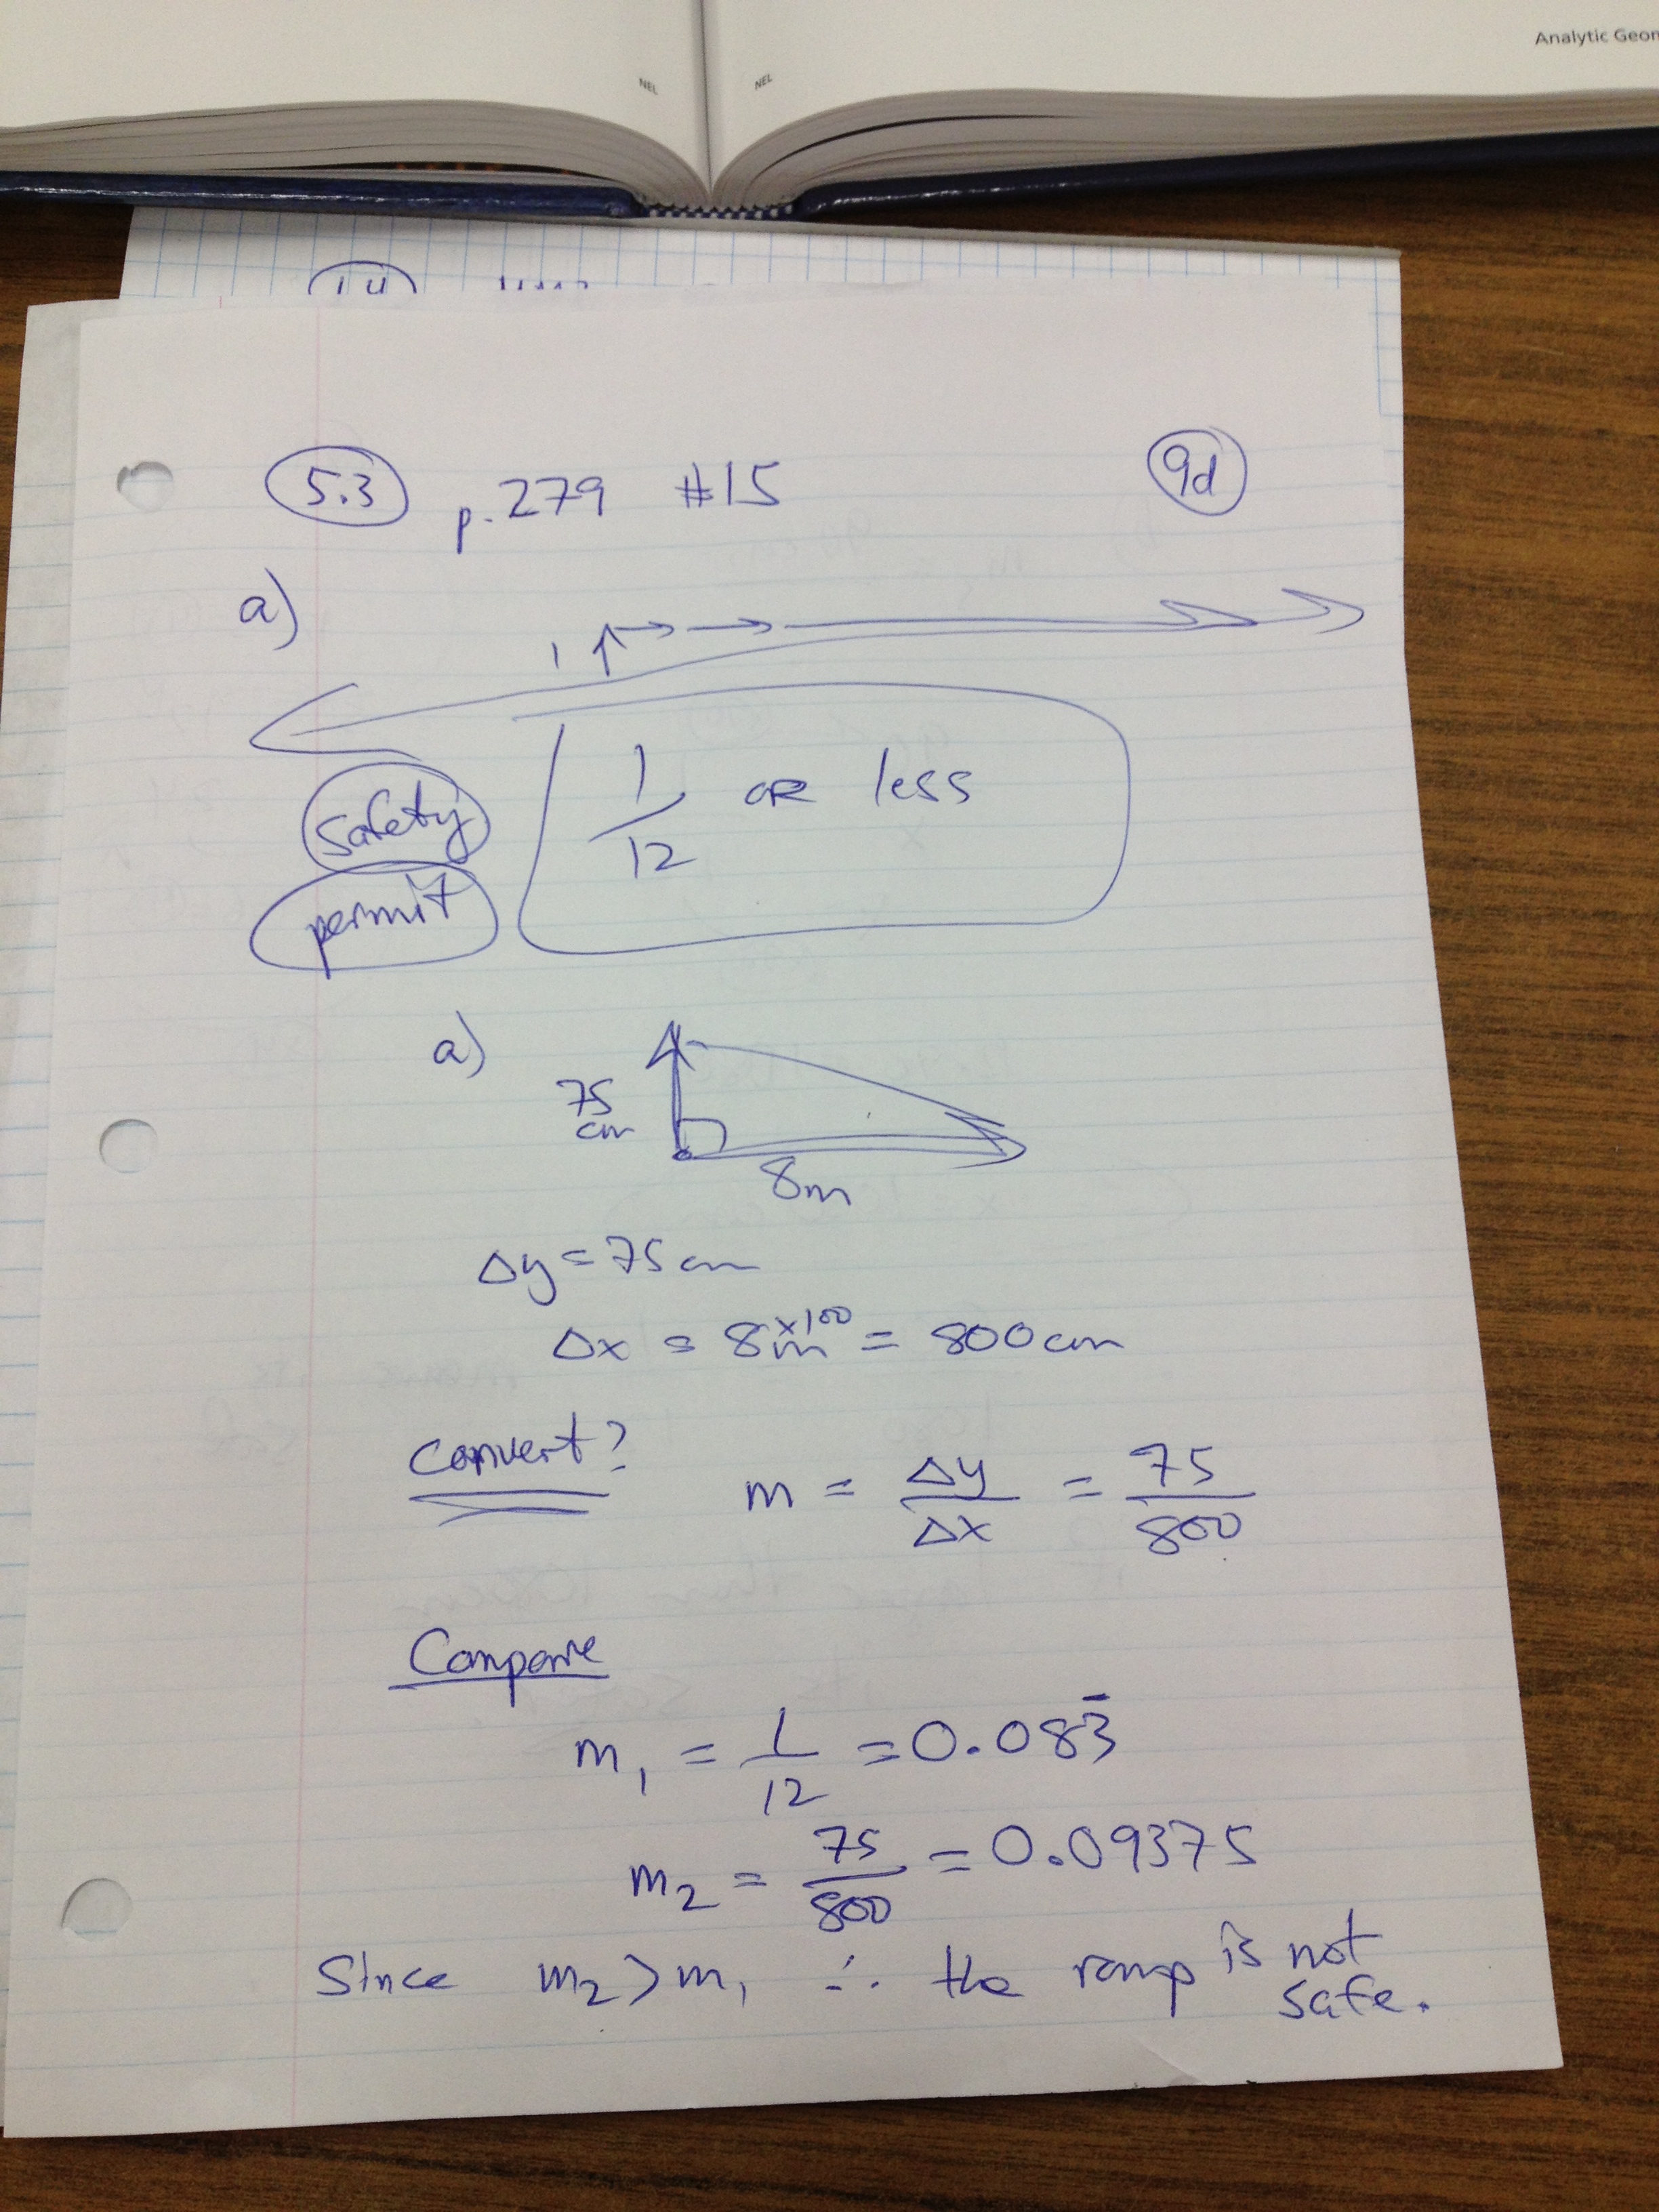 Analytic Geom
NEL NEL
14
5.3 p.279 #15 9d
a)
1
1/12 OR less
safety
permit
a)
75
cm
8m
Δy = 75cm
Δx = 8m ×100 = 800cm
convert? m = Δy/Δx = 75/800
Compare
m₁ = 1/12 = 0.083̄
m₂ = 75/800 = 0.09375
Since m₂ > m₁ ∴ the ramp is not
safe.